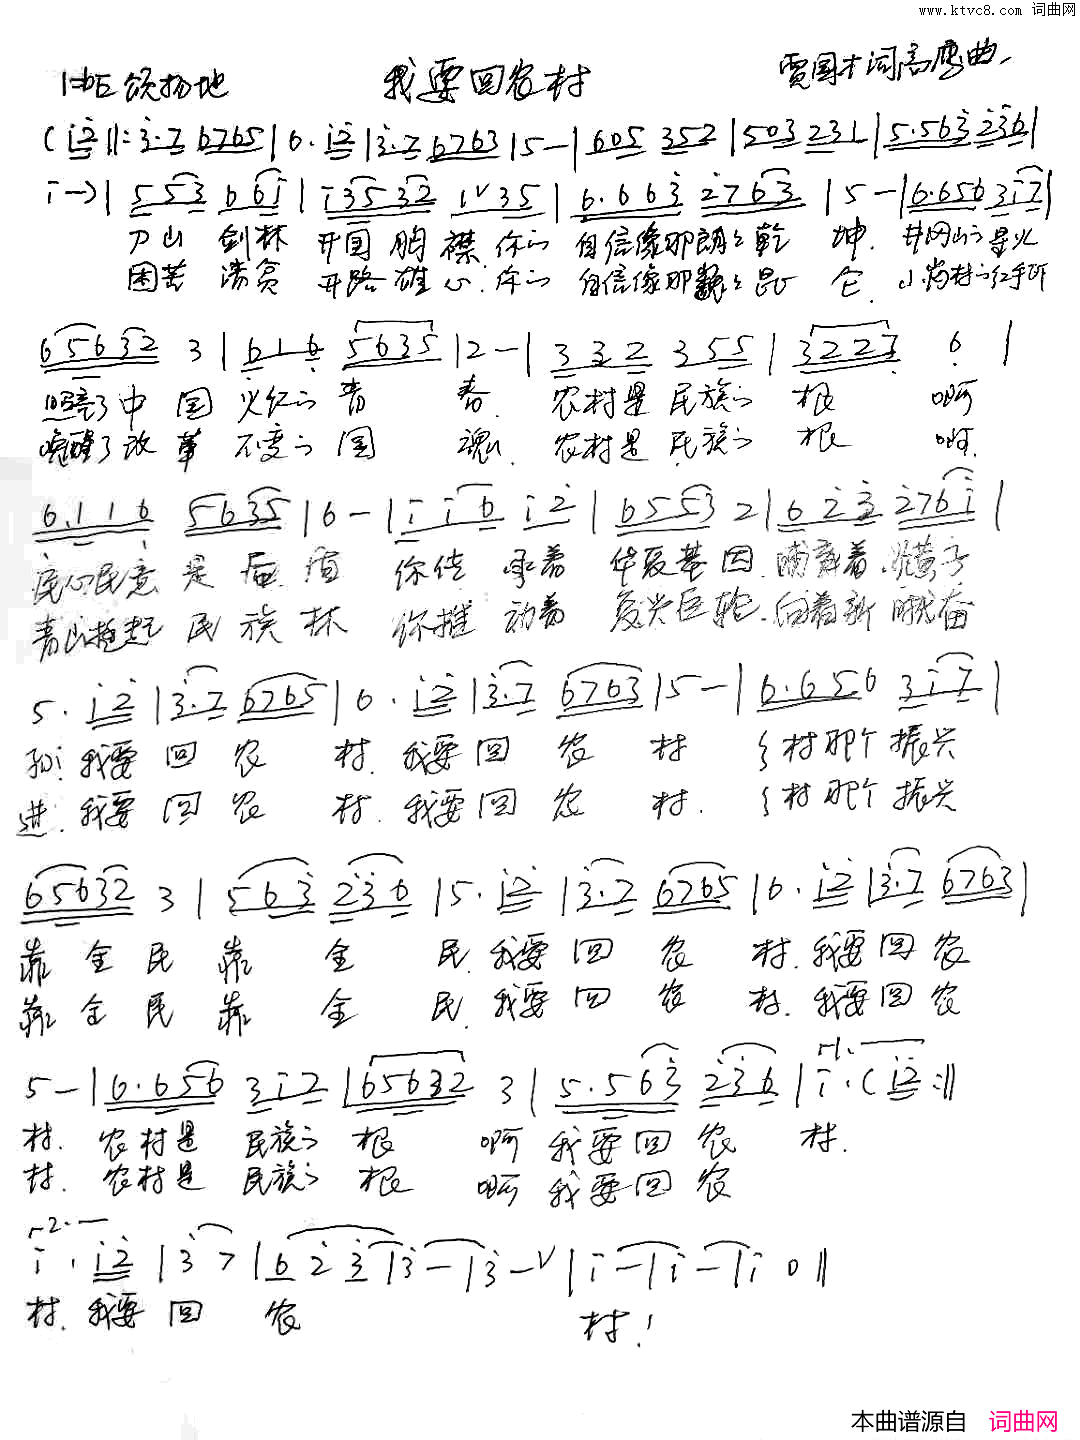 www.ktvc8.com 词曲网
1=bE 颂扬地 我要回农村 贾国才词高鹰曲
(i2‖:3.7 6765|6.i2|3.7 6763|5-|605 352|503 231|5.563 236|
i-)|553 66i|i3532 1∨35|6.663 2763|5-|6.656 3i7|
刀山 剑林 开国胸襟.你的 自信像那朗朗乾 坤.井冈山的星火
困苦 清贫 开路雄心.你的 自信像那巍巍昆 仑.小岗村的红手印
65632 3|616 5635|2-|332 355|3223 6|
照亮了中国 火红的青 春.农村是民族的 根 啊
唤醒了改革 不变的国 魂.农村是民族的 根 啊.
6.116 5635|6-|ii6 i2|6553 2|623 276i|
民心民意 是后盾 你传承着 华夏基因.哺育着 炎黄子
青山撑起 民族林 你推动着 复兴巨轮.向着新时代奋
5.i2|3.7 6765|6.i2|3.7 6763|5-|6.656 3i7|
孙;我要回农 村.我要回农 村 乡村那个振兴
进.我要回农 村.我要回农 村.乡村那个振兴
65632 3|563 236|5.i2|3.7 6765|6.i2|3.7 6763|
靠全民 靠 全 民.我要回农 村.我要回农
靠全民 靠 全 民.我要回农 村.我要回农
5-|6.656 3i2|65632 3|5.563 236|i.(i2:‖
村.农村是 民族的 根 啊 我要回农 村.
村.农村是 民族的 根 啊 我要回农
i.i2|3 7|623|3-|3-∨|i-|i-|i 0‖
村.我要回 农 村!
本曲谱源自 词曲网